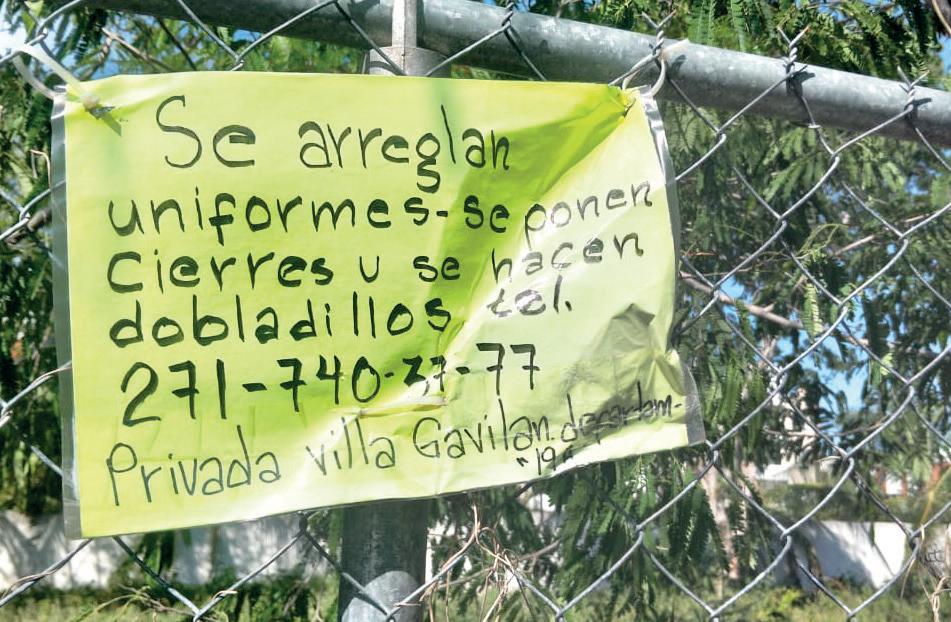 Se arreglan
uniformes-se ponen
Cierres u se hacen
dobladillos tel.
271-740-37-77
Privada villa Gavilan. departam-
"19"